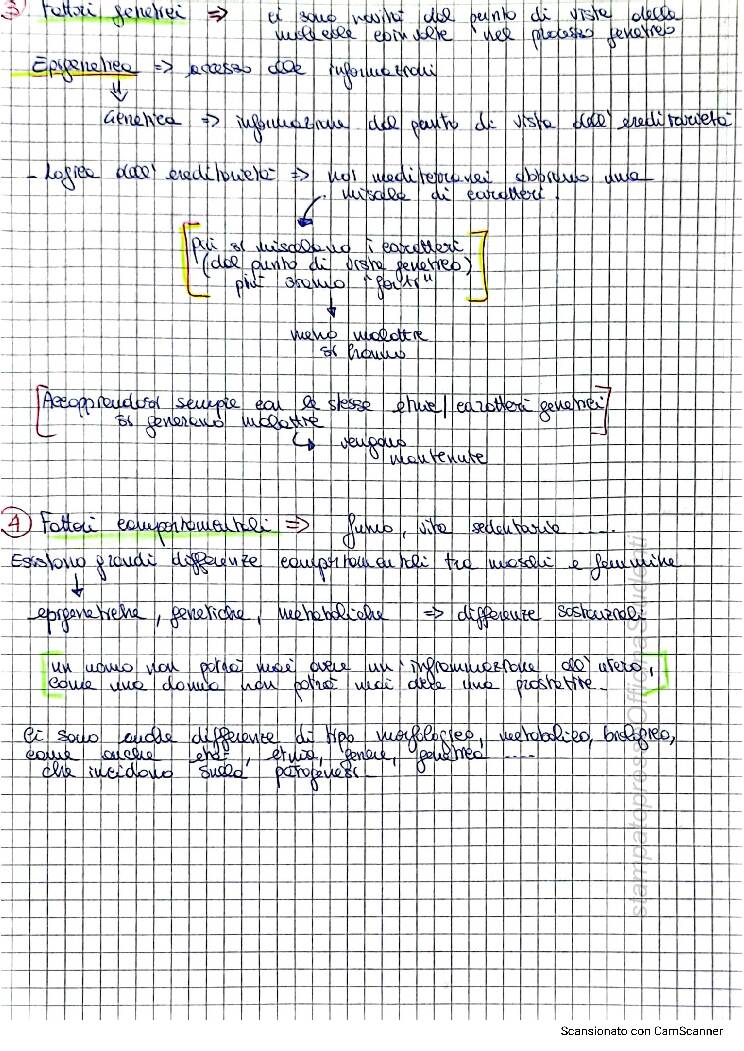 3 Fattori genetici => ci sono novità dal punto di vista delle
molecole coinvolte nel processo genetico
Epigenetica => accesso alle informazioni
Genetica => informazione dal punto di vista dell'ereditarietà
- Logica dell'ereditarietà => noi mediterranei abbiamo una
miscela di caratteri.
Più si miscelano i caratteri
(dal punto di vista genetico)
più siamo "forti"
meno malattie
si hanno
Accoppiandosi sempre con le stesse etnie/caratteri genetici
si generano malattie
vengono
mantenute
4 Fattori comportamentali => fumo, vita sedentaria .....
Esistono grandi differenze comportamentali tra maschi e femmine
epigenetiche, genetiche, metaboliche => differenze sostanziali
un uomo non potrà mai avere un'infiammazione all'utero,
come una donna non potrà mai avere una prostatite.
Ci sono anche differenze di tipo morfologico, metabolico, biologico,
come anche età, etnia, genere, genetica ....
che incidono sulla patogenesi.
stampatopressoOfficinaStudenti
Scansionato con CamScanner